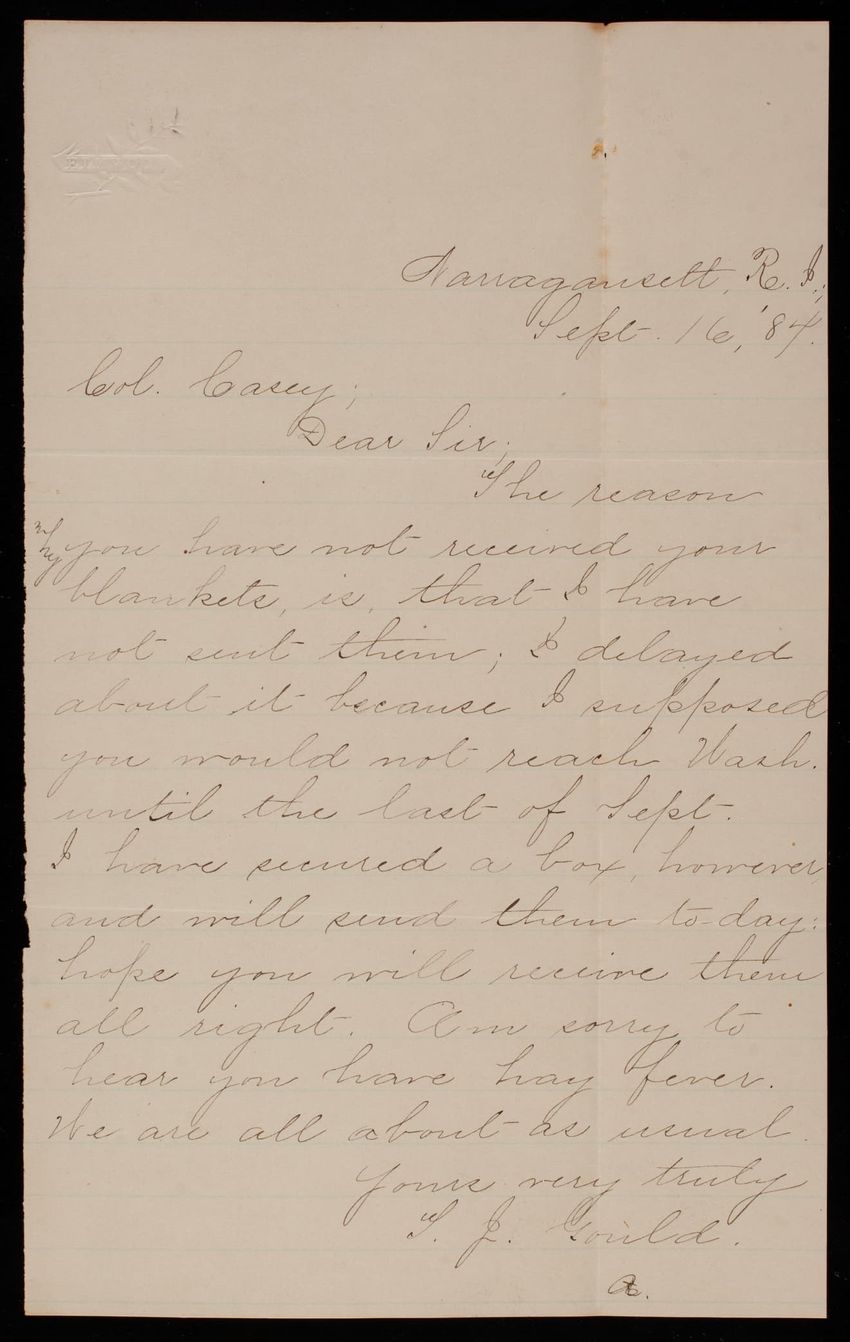 Narragansett, R. I.,
Sept. 16, '84.
Col. Casey;
Dear Sir;
The reason
why you have not received your
blankets, is, that I have
not sent them; I delayed
about it because I supposed
you would not reach Wash.
until the last of Sept.
I have secured a box, however,
and will send them to-day:
hope you will receive them
all right. Am sorry to
hear you have hay fever.
We are all about as usual.
Yours very truly
T. J. Gould.
A.